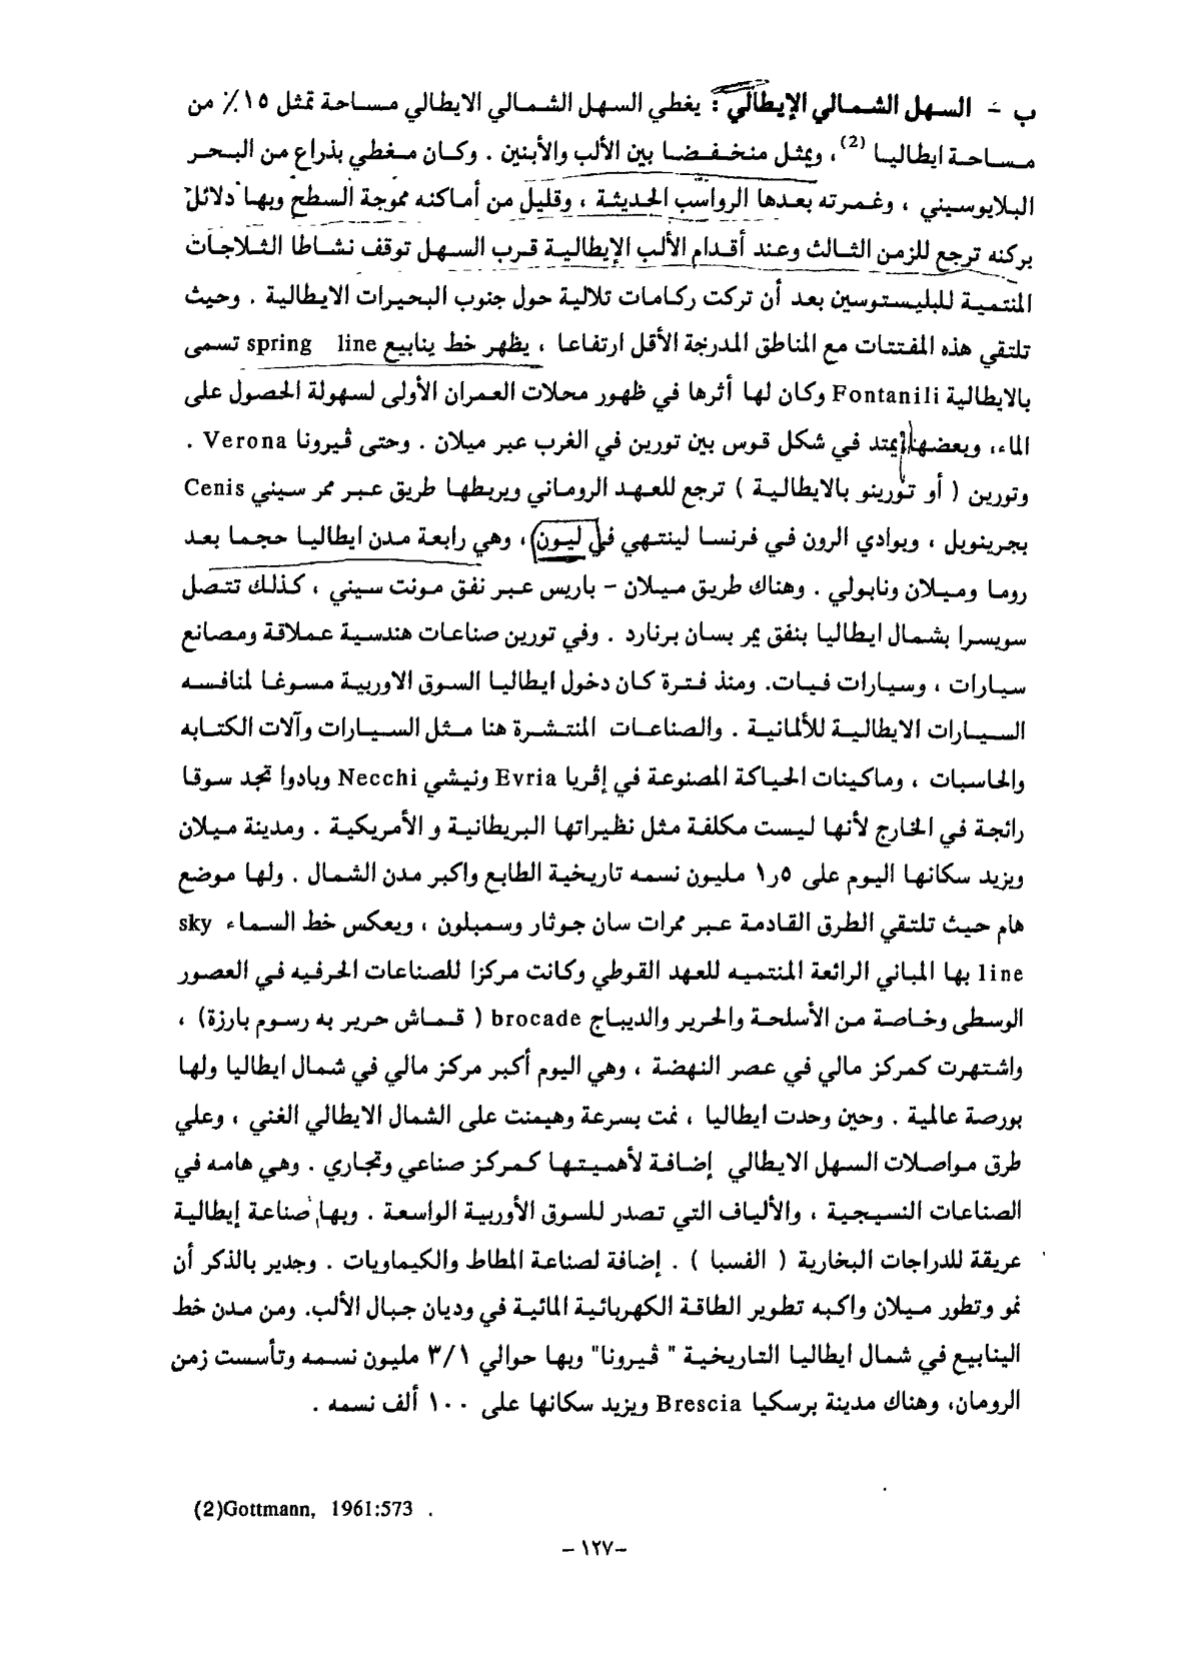 ب - السهل الشمالي الإيطالي : يغطي السهل الشمالي الايطالي مساحة تمثل ١٥٪ من
مساحة ايطاليا (2)، ويمثل منخفضا بين الألب والأبنين . وكان مغطي بذراع من البحر
البلايوسيني ، وغمرته بعدها الرواسب الحديثة ، وقليل من أماكنه مموجة السطح وبها دلائل
بركنه ترجع للزمن الثالث وعند أقدام الألب الإيطالية قرب السهل توقف نشاطا الثلاجات
المنتمية للبليستوسين بعد أن تركت ركامات تلالية حول جنوب البحيرات الايطالية . وحيث
تلتقي هذه المفتتات مع المناطق المدرجة الأقل ارتفاعا ، يظهر خط ينابيع spring line تسمى
بالايطالية Fontanili وكان لها أثرها في ظهور محلات العمران الأولى لسهولة الحصول على
الماء، وبعضها يمتد في شكل قوس بين تورين في الغرب عبر ميلان . وحتى ڤيرونا Verona .
وتورين ( أو تورينو بالايطالية ) ترجع للعهد الروماني ويربطها طريق عبر ممر سيني Cenis
بجرينوبل ، وبوادي الرون في فرنسا لينتهي في ليون ، وهي رابعة مدن ايطاليا حجما بعد
روما وميلان ونابولي . وهناك طريق ميلان - باريس عبر نفق مونت سيني ، كذلك تتصل
سويسرا بشمال ايطاليا بنفق يمر بسان برنارد . وفي تورين صناعات هندسية عملاقة ومصانع
سيارات ، وسيارات فيات. ومنذ فترة كان دخول ايطاليا السوق الاوربية مسوغا لمنافسه
السيارات الايطالية للألمانية . والصناعات المنتشرة هنا مثل السيارات وآلات الكتابه
والحاسبات ، وماكينات الحياكة المصنوعة في إڤريا Evria ونيشي Necchi وبادوا تجد سوقا
رائجة في الخارج لأنها ليست مكلفة مثل نظيراتها البريطانية و الأمريكية . ومدينة ميلان
ويزيد سكانها اليوم على ١٫٥ مليون نسمه تاريخية الطابع واكبر مدن الشمال . ولها موضع
هام حيث تلتقي الطرق القادمة عبر ممرات سان جوثار وسمبلون ، ويعكس خط السماء sky
line بها المباني الرائعة المنتميه للعهد القوطي وكانت مركزا للصناعات الحرفيه في العصور
الوسطى وخاصة من الأسلحة والحرير والديباج brocade ( قماش حرير به رسوم بارزة) ،
واشتهرت كمركز مالي في عصر النهضة ، وهي اليوم أكبر مركز مالي في شمال ايطاليا ولها
بورصة عالمية . وحين وحدت ايطاليا ، نمت بسرعة وهيمنت على الشمال الايطالي الغني ، وعلي
طرق مواصلات السهل الايطالي إضافة لأهميتها كمركز صناعي وتجاري . وهي هامه في
الصناعات النسيجية ، والألياف التي تصدر للسوق الأوربية الواسعة . وبها صناعة إيطالية
عريقة للدراجات البخارية ( الفسبا ) . إضافة لصناعة المطاط والكيماويات . وجدير بالذكر أن
نمو وتطور ميلان واكبه تطوير الطاقة الكهربائية المائية في وديان جبال الألب. ومن مدن خط
الينابيع في شمال ايطاليا التاريخية " ڤيرونا" وبها حوالي ٣/١ مليون نسمه وتأسست زمن
الرومان، وهناك مدينة برسكيا Brescia ويزيد سكانها على ١٠٠ ألف نسمه .
(2)Gottmann, 1961:573 .
- ١٢٧-